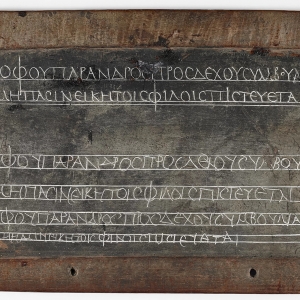 ΟΦΟΥΠΑΡΑΝΔΡΟϹΠΡΟϹΔΕΧΟΥϹΥΜΒΟΥ
ΜΗΠΑϹΙΝΕΙΚΗΤΟΙϹΦΙΛΟΙϹΠΙϹΤΕΥΕΤΑ
ΦΟΥΠΑΡΑΝΔΡΟϹΠΡΟϹΔΕΧΟΥϹΥΜΒΟΥ
ΜΗΠΑϹΙΝΕΙΚΗΤΟΙϹΦΙΛΟΙϹΠΙϹΤΕΥΕΤΑΙ
ΦΟΥΠΑΡΑΝΔΡΟϹΠΡΟϹΔΕΧΟΥϹΥΜΒΟΥΛΙΑ
ΗΠΑϹΙΝΕΙΚΗΤΟΙϹΦΙΛΟΙϹΠΙϹΤΕΥΕΤΑΙ